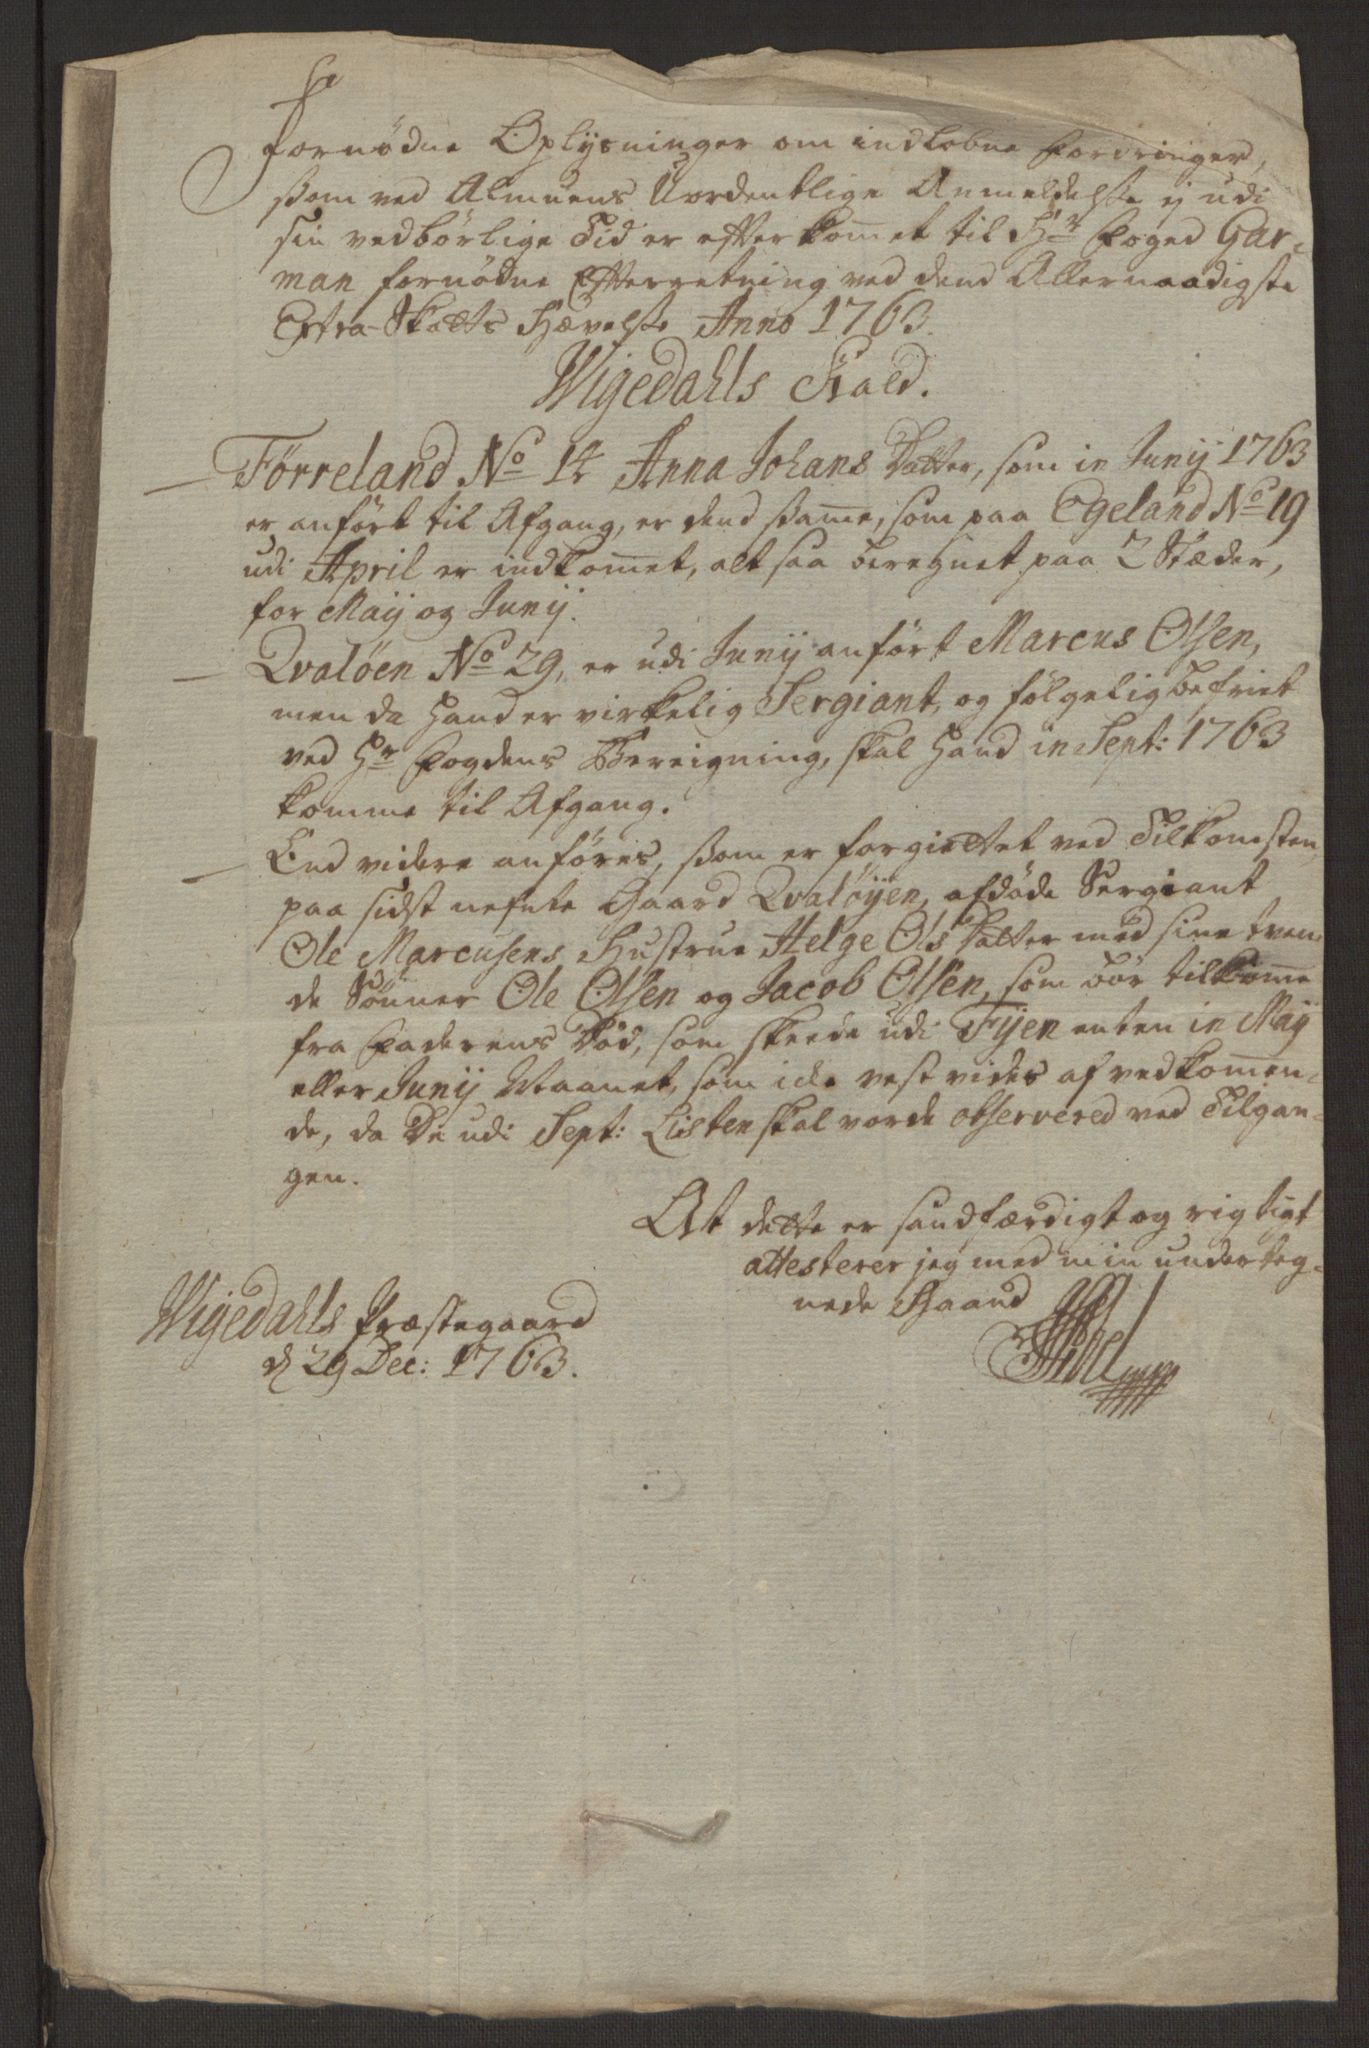 fornödne Oplysninger om indlobne Fordringer,
ßom ved Almuens Uordentlige Anmeldelße ej udi
sin vedbörlige Tid er efterkom̅et til Hr Foged Gar-
man fornödne Efterretning ved dend Allernaadigste
Extra-Skatts Hævelße Anno 1763.
Wigedahls Kald.
Førreland No 14 Anna Johans Datter, som in Junij 1763
er anført til Afgang, er dend ßam̅e, som paa Egeland No 19
udi April er indkom̅et, alt saa beregnet paa 2 Stæder,
for Maij og Junij.
Qvaløen No 29, er udi Junij anført Marcus Olsen,
men da Hand er virkelig Sergiant, og følgelig befriet
ved Hr Fogdens Bereigning, skal Hand in Sept: 1763
komme til Afgang.
End videre anföres, ßom er forgiettet ved Tilkomsten
paa sidst nefnte Gaard Qvaløijen, afdöde Sergiant
Ole Marcusens Hustrue Helge Ols Datter med sine tven-
de Sönner Ole Olsen og Jacob Olsen, som bör tilkom̅e
fra Faderens Död, som skeede udi Fijen enten in Maij
eller Junij Maanet, som icke vest vides af vedkom̅en-
de, da De udi Sept: Listen skal vorde observered ved Tilgan-
gen.
At dette er sandfærdigt og rigtigt
attesterer jeg med min underteg-
nede Haand
Wigedahls Præstegaard
d 29 Dec: 1763.